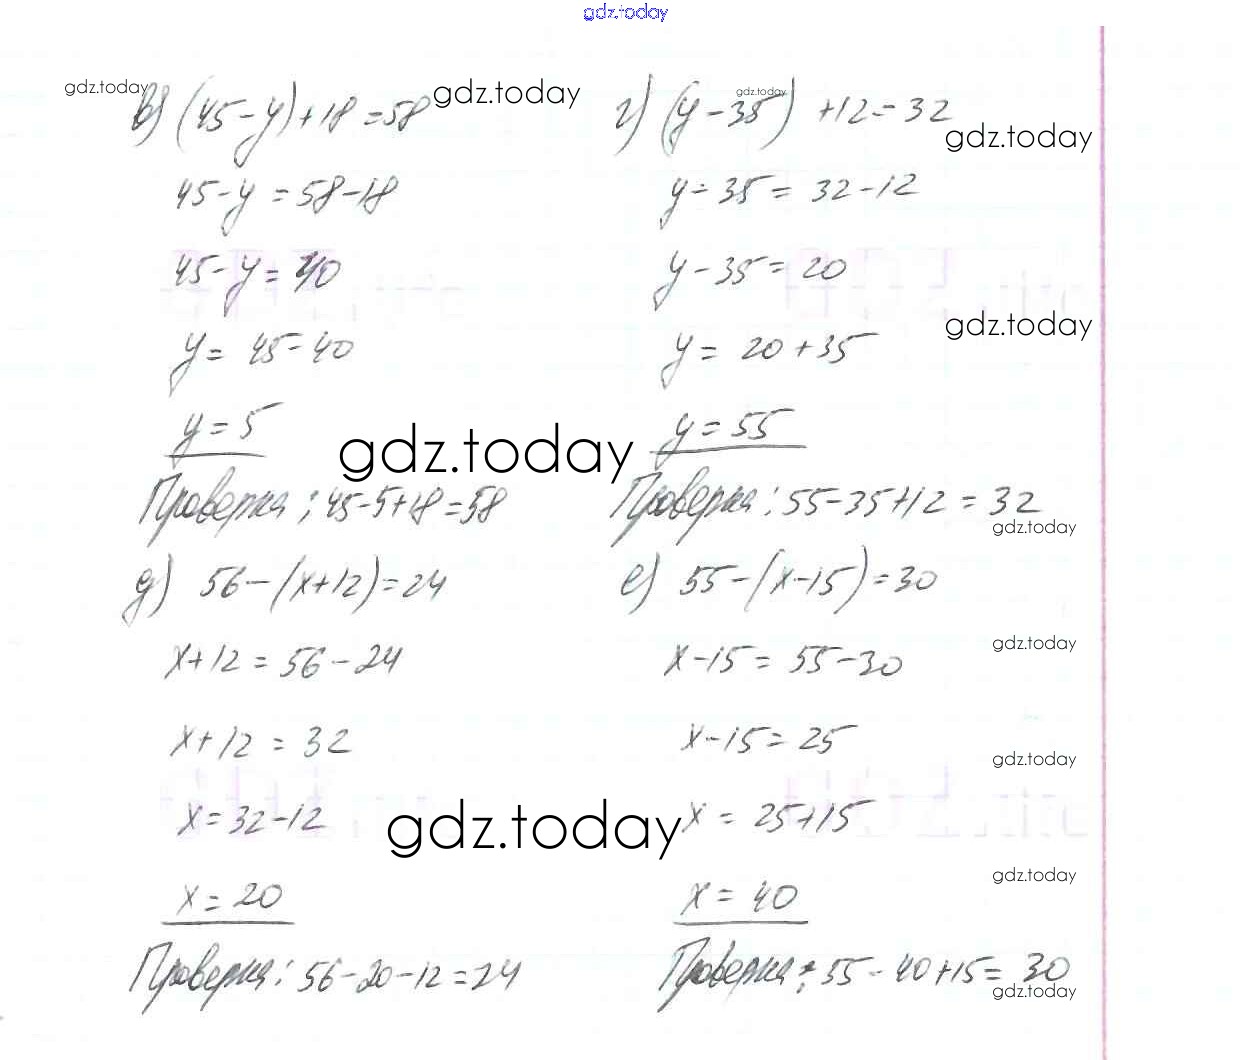 gdz.today
gdz.today
в) (45-y)+18=58
gdz.today
45-y=58-18
45-y=40
y=45-40
y=5
gdz.today
Проверка: 45-5+18=58
г) (y-35)+12=32
gdz.today
gdz.today
y-35=32-12
y-35=20
gdz.today
y=20+35
y=55
Проверка: 55-35+12=32
gdz.today
д) 56-(x+12)=24
x+12=56-24
x+12=32
x=32-12
gdz.today
x=20
Проверка: 56-20-12=24
е) 55-(x-15)=30
gdz.today
x-15=55-30
x-15=25
gdz.today
x=25+15
gdz.today
x=40
Проверка: 55-40+15=30
gdz.today